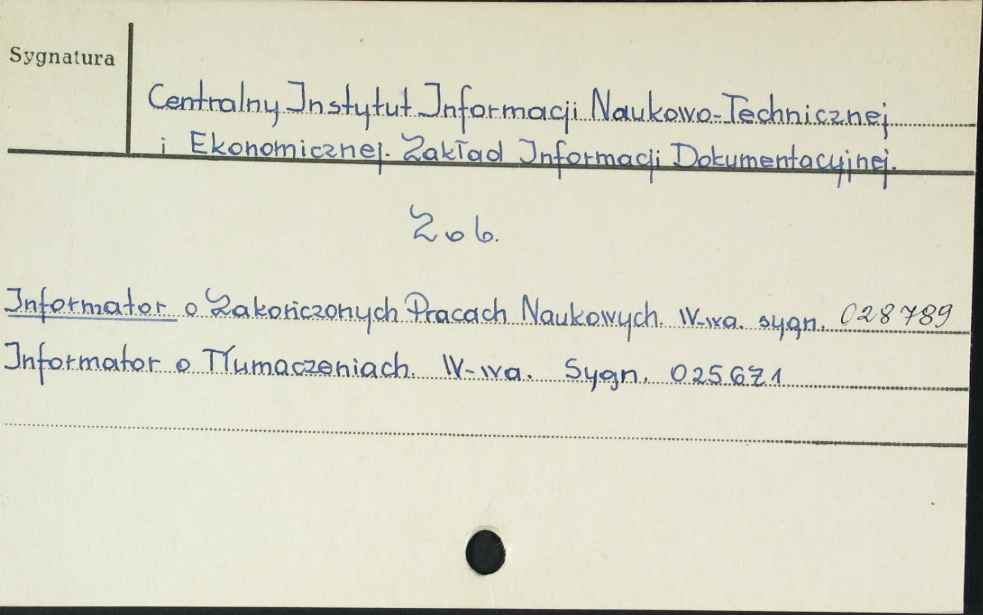 Sygnatura
Centralny Instytut Informacji Naukowo-Technicznej
i Ekonomicznej. Zakład Informacji Dokumentacyjnej.
Zob.
Informator o Zakończonych Pracach Naukowych. W-wa. sygn. 028789
Informator o Tłumaczeniach. W-wa. Sygn. 025671